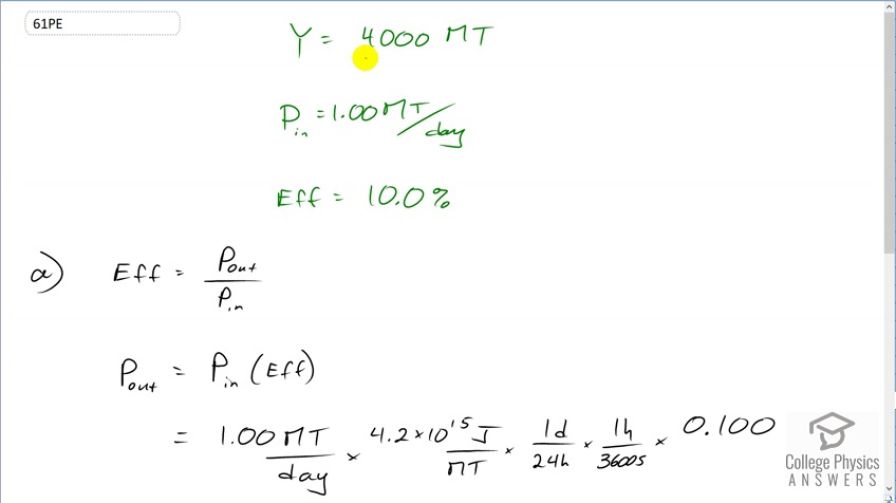 61PE
Y = 4000 MT
P_in = 1.00 MT/day
Eff = 10.0%
a) Eff = P_out / P_in
P_out = P_in (Eff)
= 1.00 MT/day × 4.2 × 10^15 J/MT × 1d/24h × 1h/3600s × 0.100
College Physics
ANSWERS